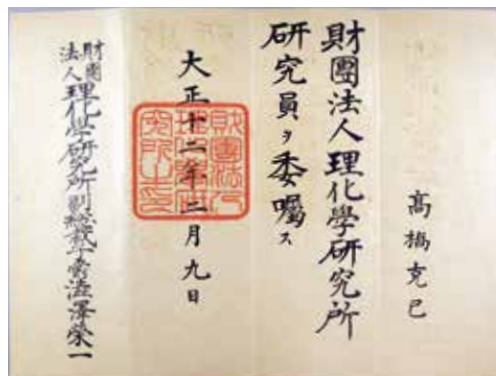 高橋克己
財團法人理化學研究所
研究員ヲ委囑ス
大正十二年二月九日
財團法人理化學研究所副總裁子爵澁澤榮一
財團法人
理化學研
究所之印